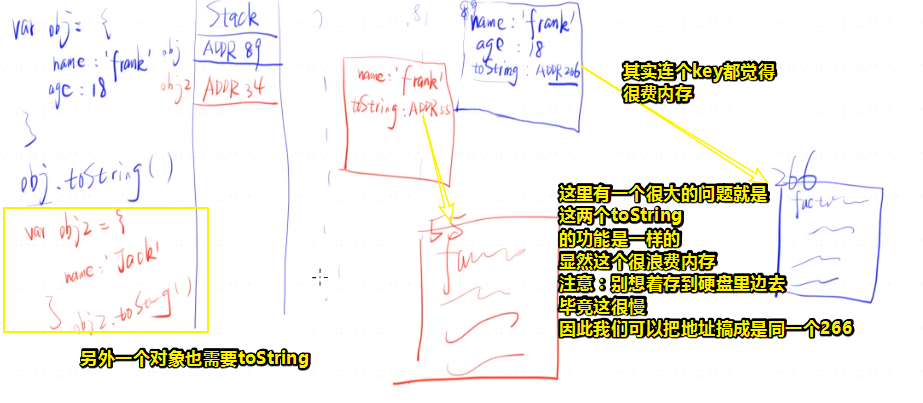 var obj = {
name : 'frank'
age : 18
}
obj.toString()
var obj2 = {
name : 'Jack'
}
obj2.toString()
另外一个对象也需要toString
Stack
obj ADDR 89
obj2 ADDR 34
name : 'frank'
toString : ADDR 55
55
89
name : 'frank'
age : 18
toString : ADDR 266
其实连个key都觉得
很费内存
266
这里有一个很大的问题就是
这两个toString
的功能是一样的
显然这个很浪费内存
注意：别想着存到硬盘里边去
毕竟这很慢
因此我们可以把地址搞成是同一个266